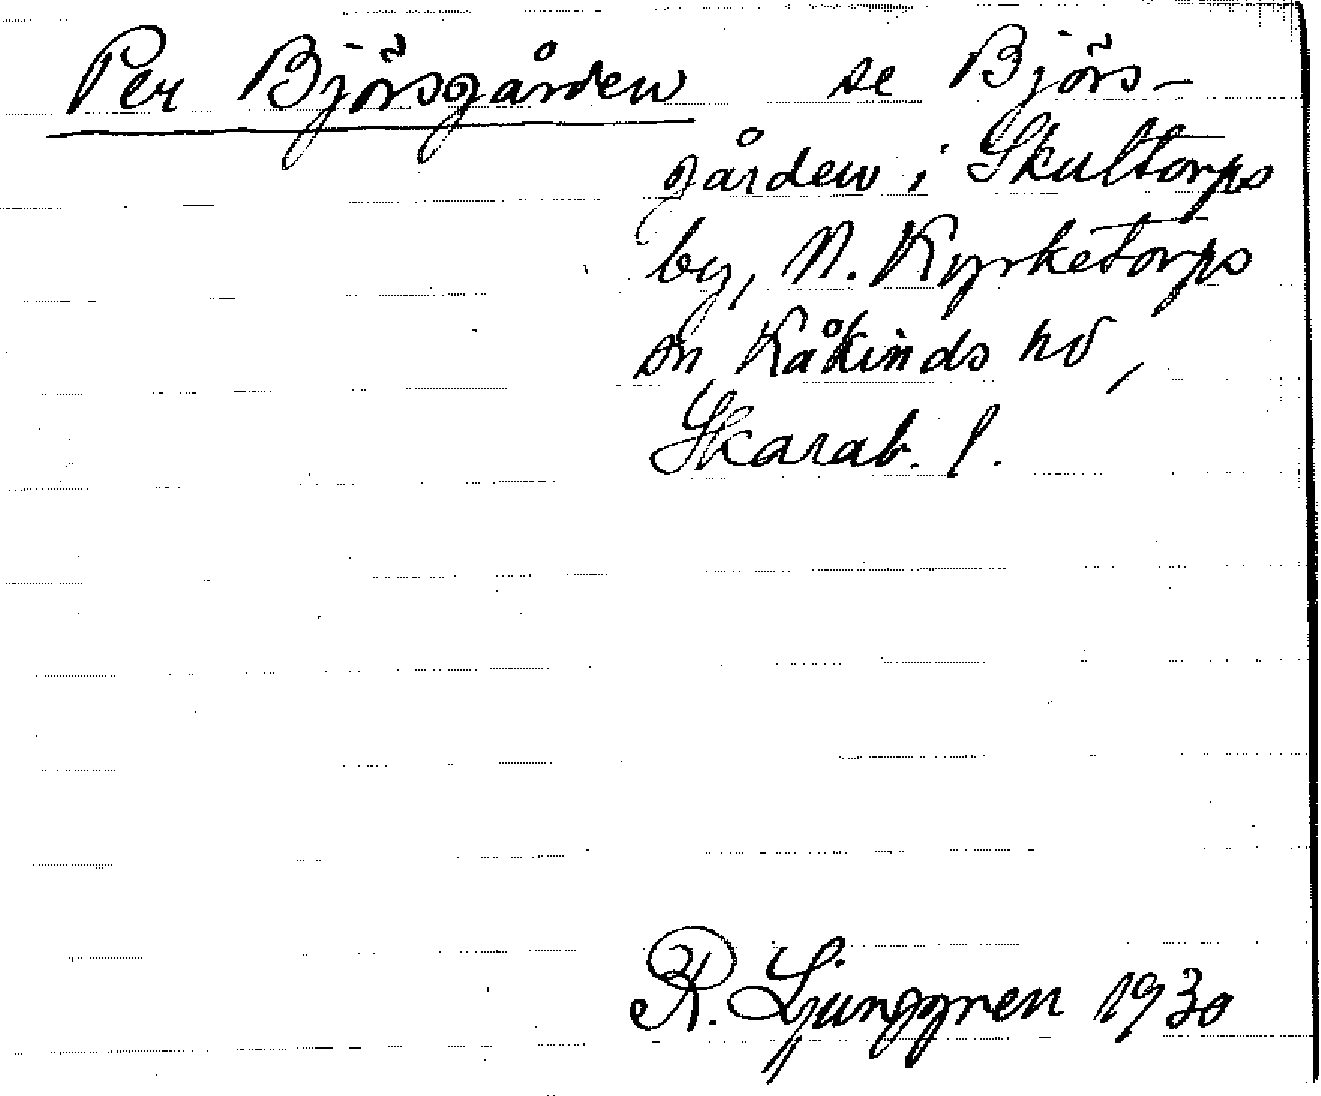 Per Björsgården se Björs-
gården i Skultorps
by, N. Kyrketorps
sn Kåkinds hd,
Skarab. l.
R. Ljunggren 1930